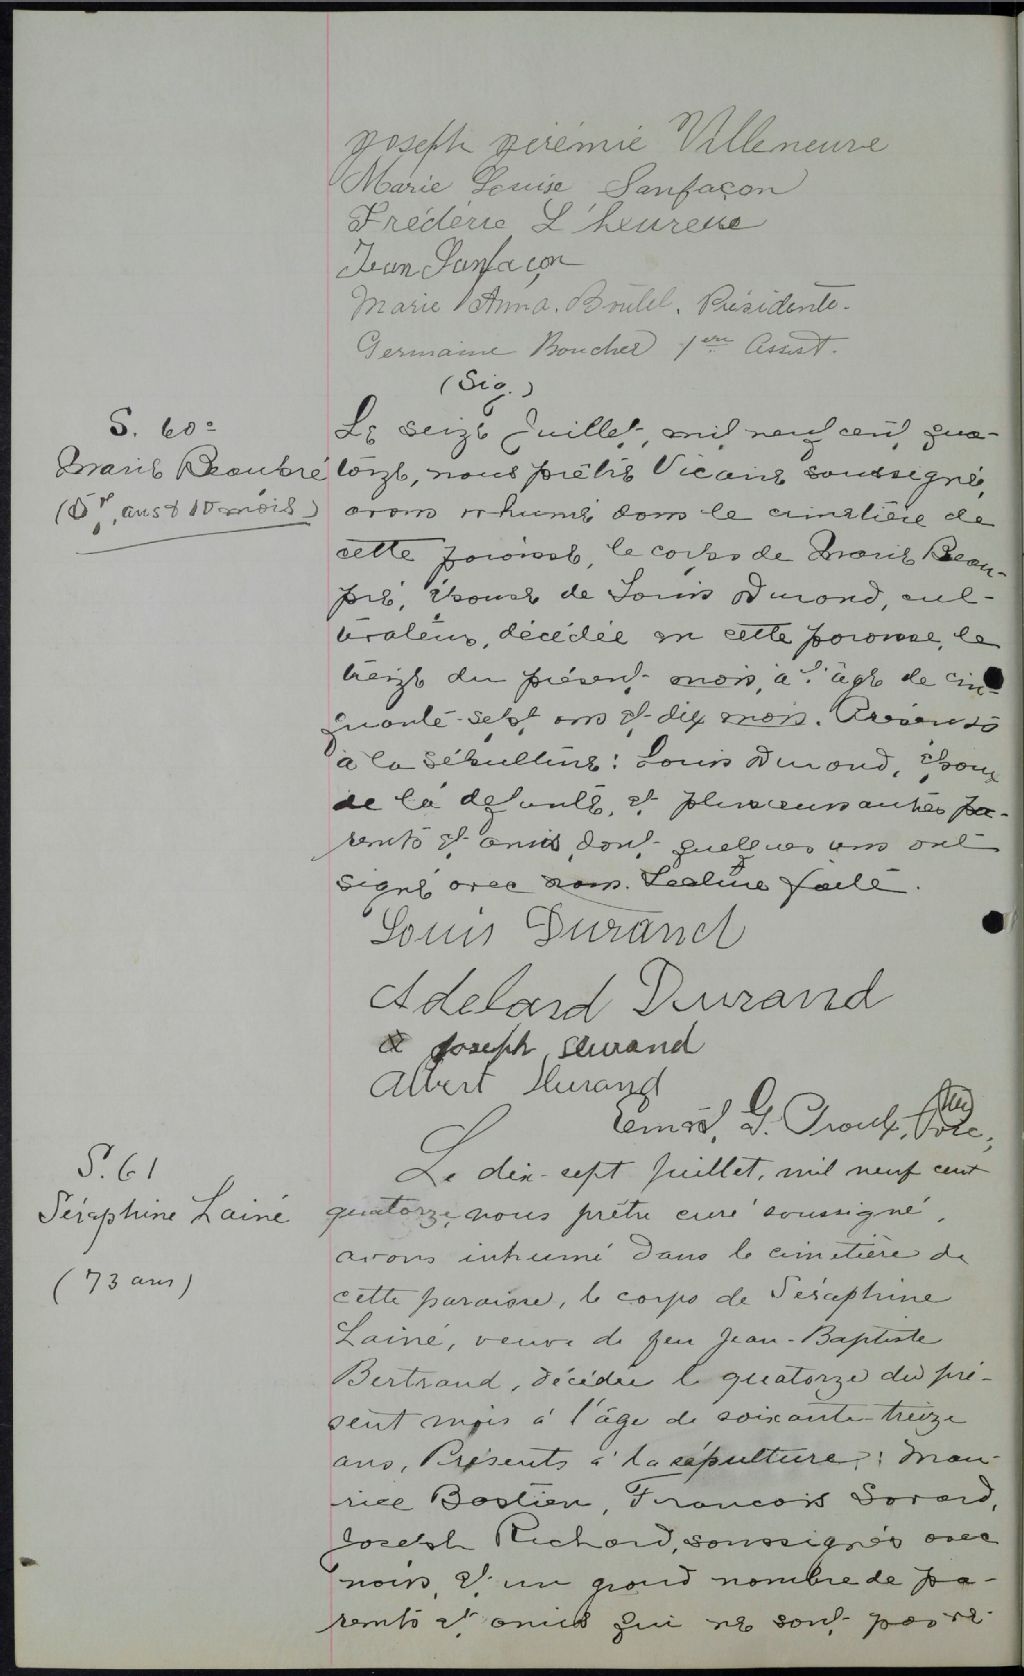 Joseph Jérémie Villeneuve
Marie Louise Sanfaçon
Frédéric L'heureux
Jean Sanfaçon
Marie Anna Boutet. Présidente.
Germaine Boucher 1ère Assist.
(Sig.)
S. 60e
Marie Beaupré
(57 ans & 10 mois)
Le seize Juillet, mil neuf cent qua-
torze, nous prêtre Vicaire soussigné,
avons inhumé dans le cimetière de
cette paroisse, le corps de Marie Beau-
pré, épouse de Louis Durand, cul-
tivateur, décédée en cette paroisse, le
treize du présent mois, à l'âge de cin-
quante-sept ans et dix mois. Présents
à la sépulture: Louis Durand, époux
de la défunte, et plusieurs autres pa-
rents et amis, dont quelques uns ont
signé avec nous. Lecture faite.
Louis Durand
Adelard Durand
Joseph Durand
Albert Durand
G. Proulx, ptre
S. 61
Séraphine Lainé
(73 ans)
Le dix-sept Juillet, mil neuf cent
quatorze, nous prêtre curé soussigné,
avons inhumé dans le cimetière de
cette paroisse, le corps de Séraphine
Lainé, veuve de feu Jean-Baptiste
Bertrand, décédée le quatorze du pré-
sent mois à l'âge de soixante-treize
ans, Présents à la sépulture: Mau-
rice Bastien, François Savard,
Joseph Richard, soussignés avec
nous, et un grand nombre de pa-
rents et amis qui ne sont pas re-